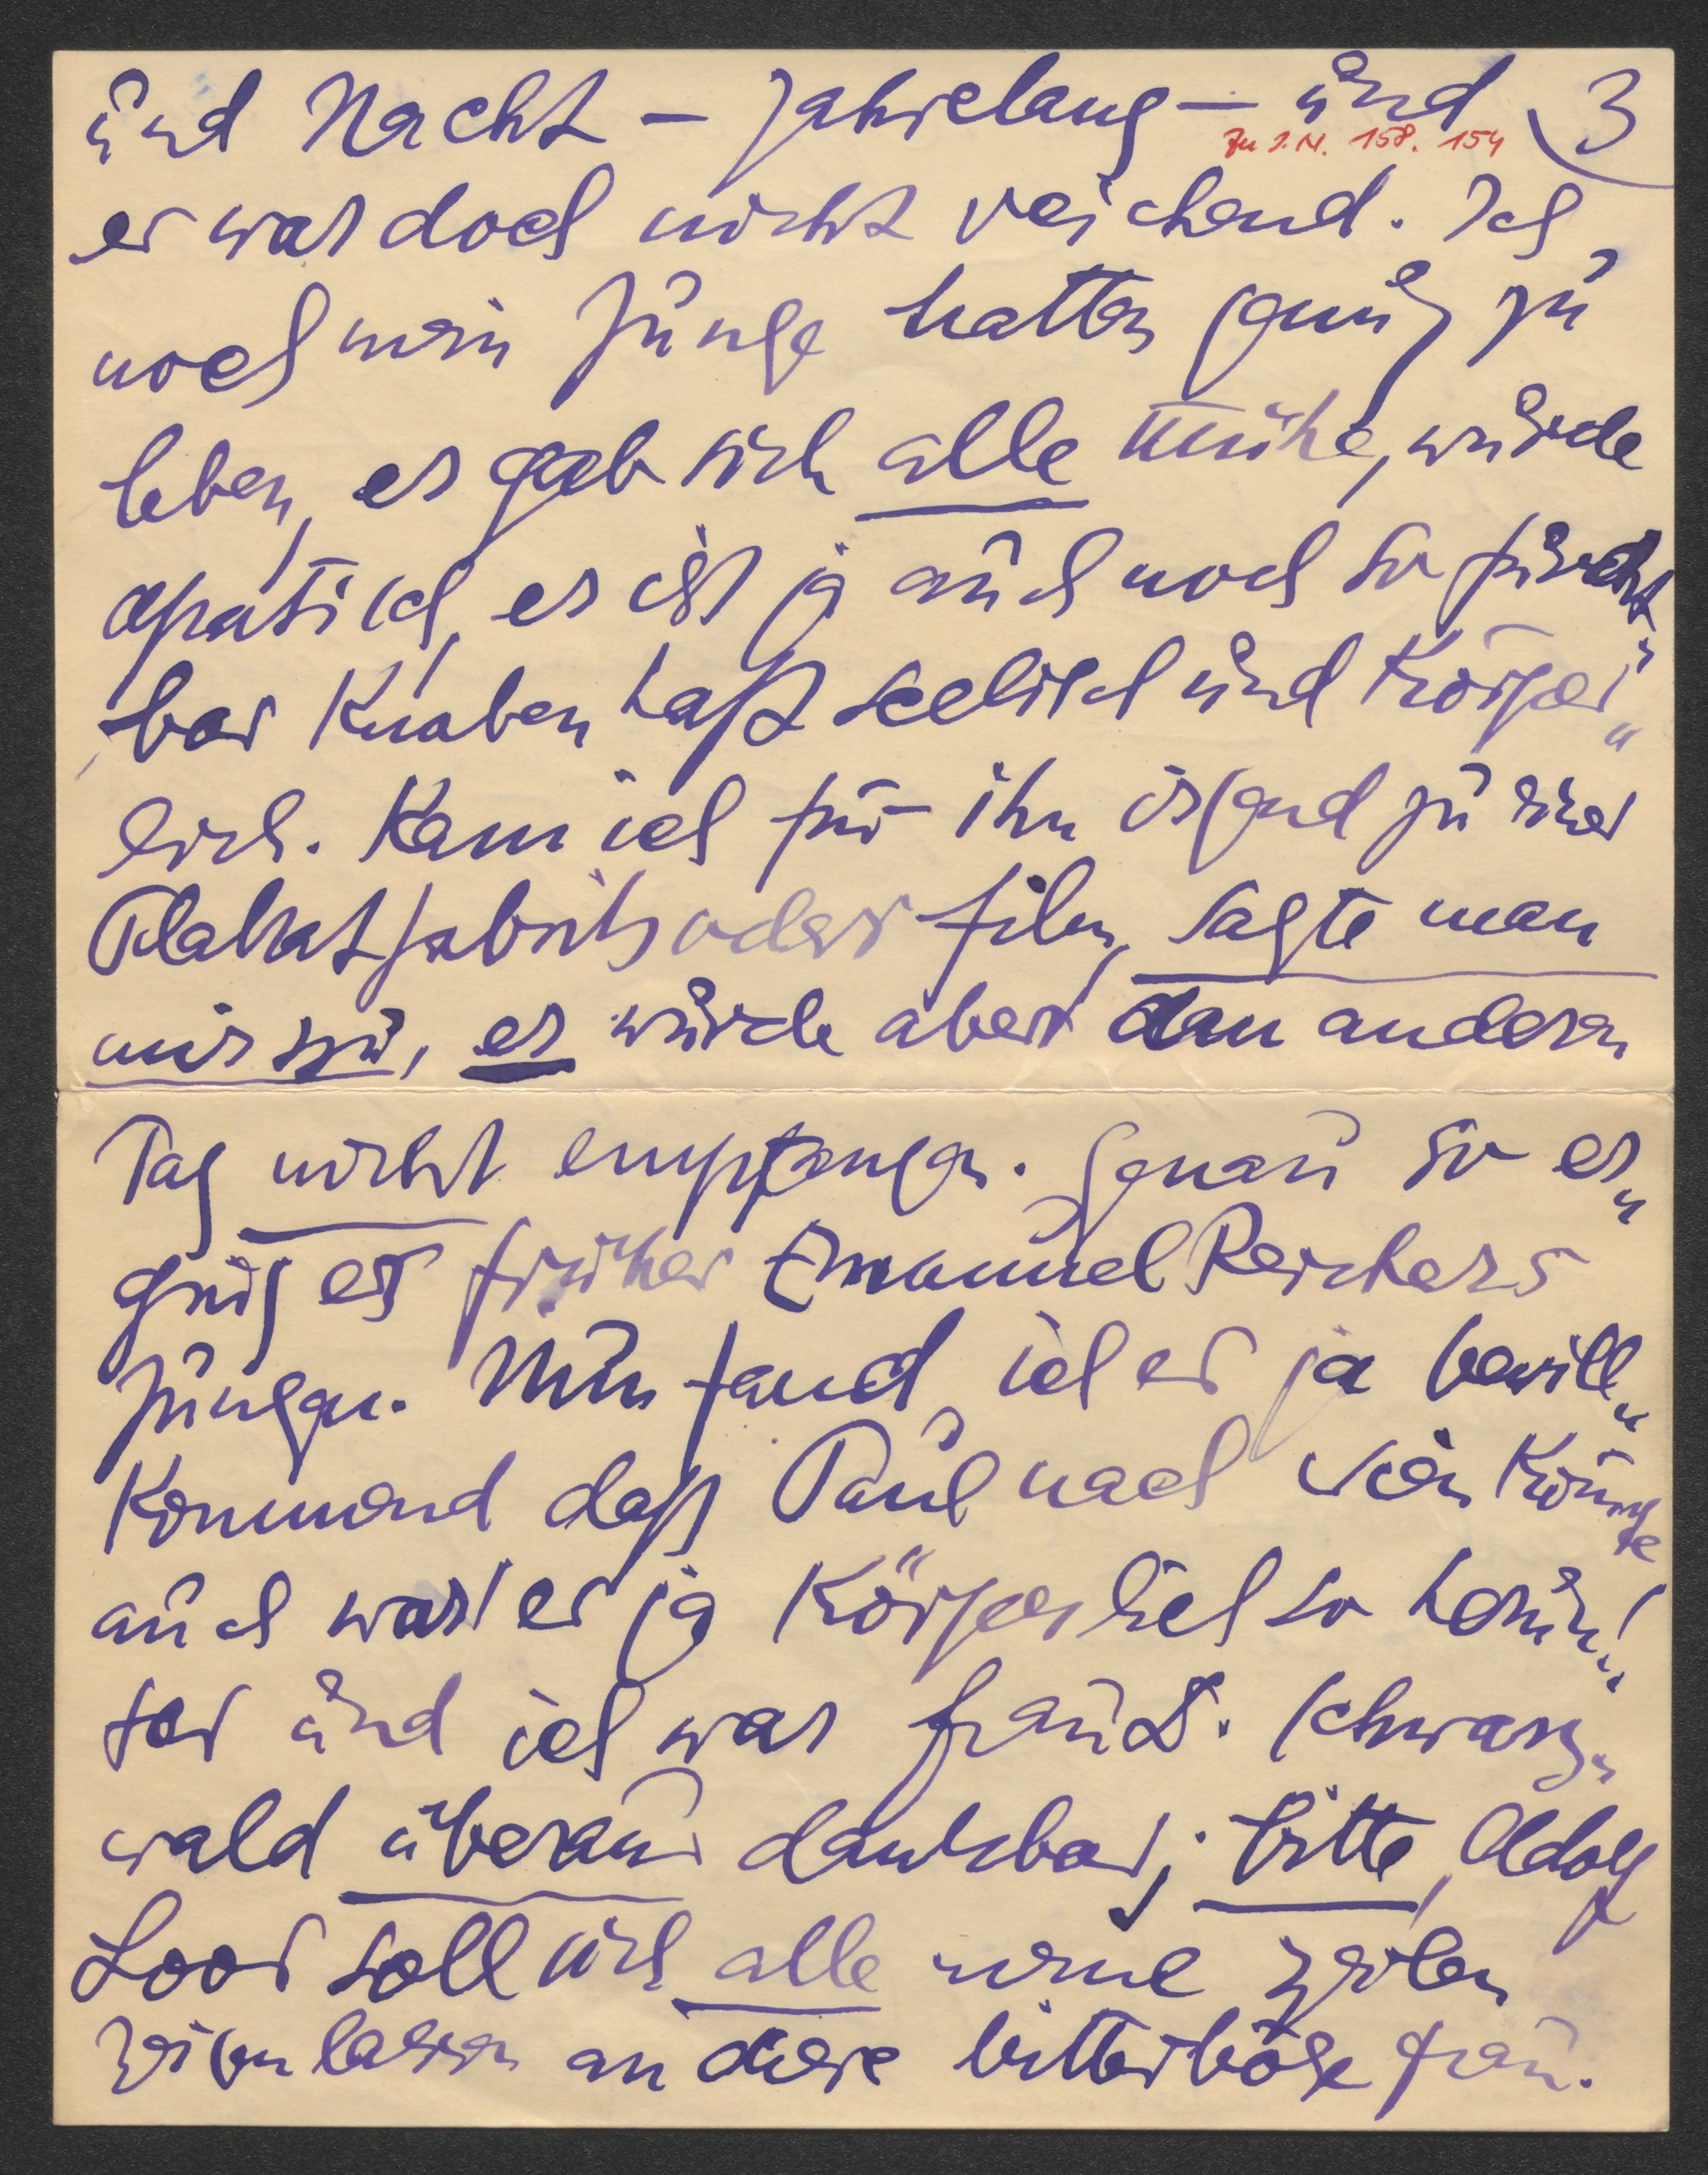 und Nacht – jahrelang – und 3
Zu I.N. 158.154
er war doch nicht reichend. Ich,
noch mein Junge hatten genug zu
leben, er gab sich alle Mühe, wurde
apatisch, er ist ja auch noch so furcht„
bar knabenhaft seelisch und körper„
lich. Kam ich für ihn irgend zu einer
Plakatfabrik oder Film, sagte man
mir zu, er wurde aber dan andern
Tag nicht empfangen. Genau so er„
ging es früher Emanuel Reichers
Jungen. Nun fand ich es ja bewill„
kommend daß Paul nach Wien könnte
auch war er ja körperlich so herun„
ter und ich war Frau D. Schwarz„
wald überaus dankbar; bitte, Adolf
Loos soll sich alle meine Zeilen
zeigen lassen an diese bitterböse Frau.